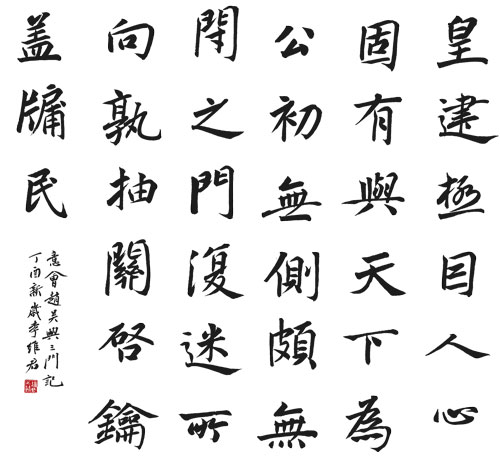 皇建極囙人心
固有與天下為
公初無側頗無
閇之門復迷所
向孰抽關啓鑰
盖牖民
意會趙吴興三門記
丁酉新歲李維君